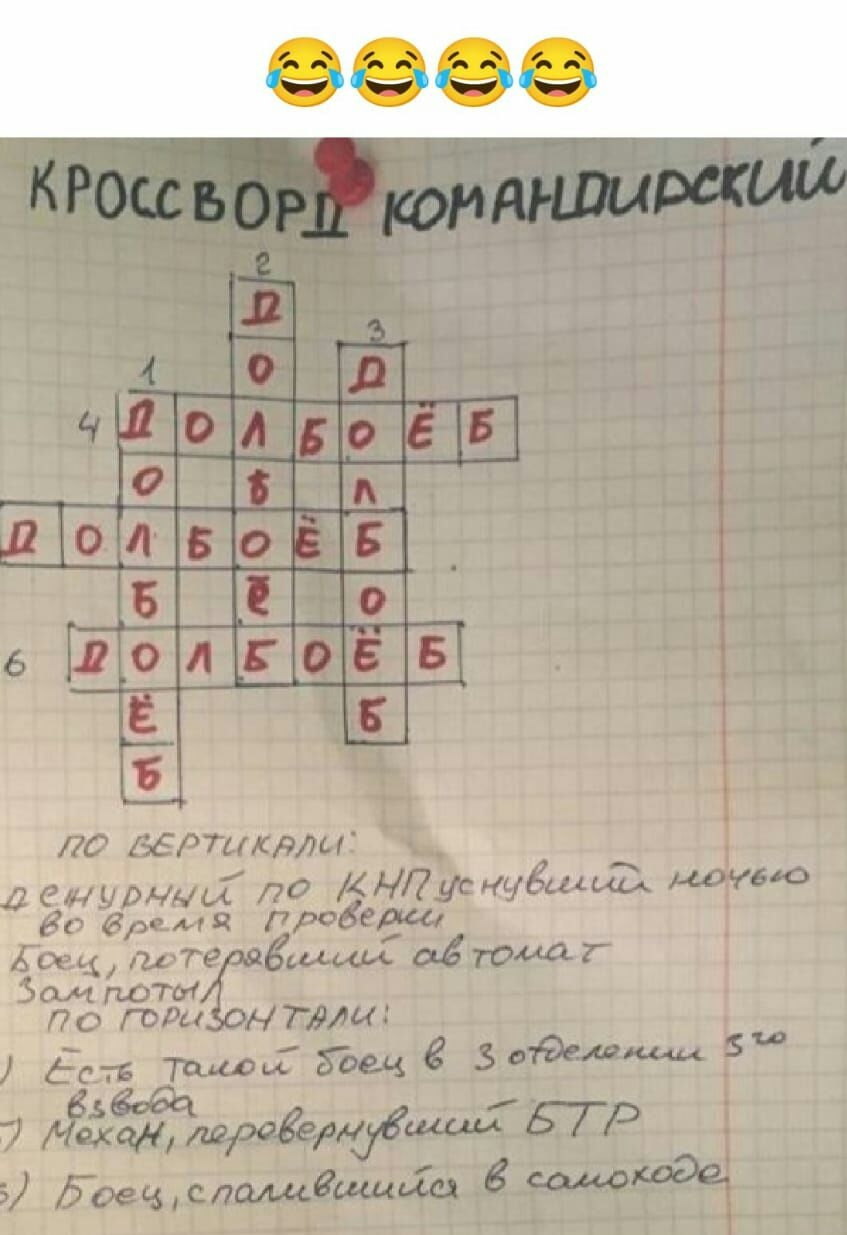 КРОССВОРД КОМАНДИРСКИЙ
2
Д
3
О Д
1
4 ДОЛБОЁБ
О Б Л
ДОЛБОЁБ
Б Ё О
6 ДОЛБОЁБ
Ё Б
Б
ПО ВЕРТИКАЛИ:
ДЕЖУРНЫЙ ПО КНП уснувший ночью
во время проверки
Боец, потерявший автомат
Зампотыл
ПО ГОРИЗОНТАЛИ:
) Есть такой боец в 3 отделении 3го
взвода
) Механ, перевернувший БТР
) Боец, спалившийся в самоходе